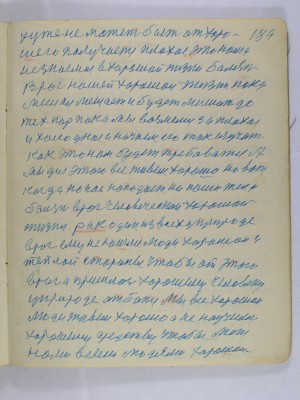 хуже не может быть от хоро- 184
шего получается плохое, это наша
незнаемая в хорошой жизни болезнь
Враг нашей хорошей жизни пока
мешал мешает и будет мешать до
тех пор пока мы возьмемся за плохое
и холодное и начнем его так
как это нам будет требоваться А
мы для этого все живем хорошо но вот
когда на нас нападает на наше тело
болезнь враг человеческой хорошой
жизни рак один из всех в природе
враг ему не нашли люди хорошей и
теплой стороны чтобы от этого
врага пришлось хорошему человеку
в природе отбыть Мы все хорошие
люди живем хорошо а не научились
хорошему средству чтобы мог
всем людям хорошим